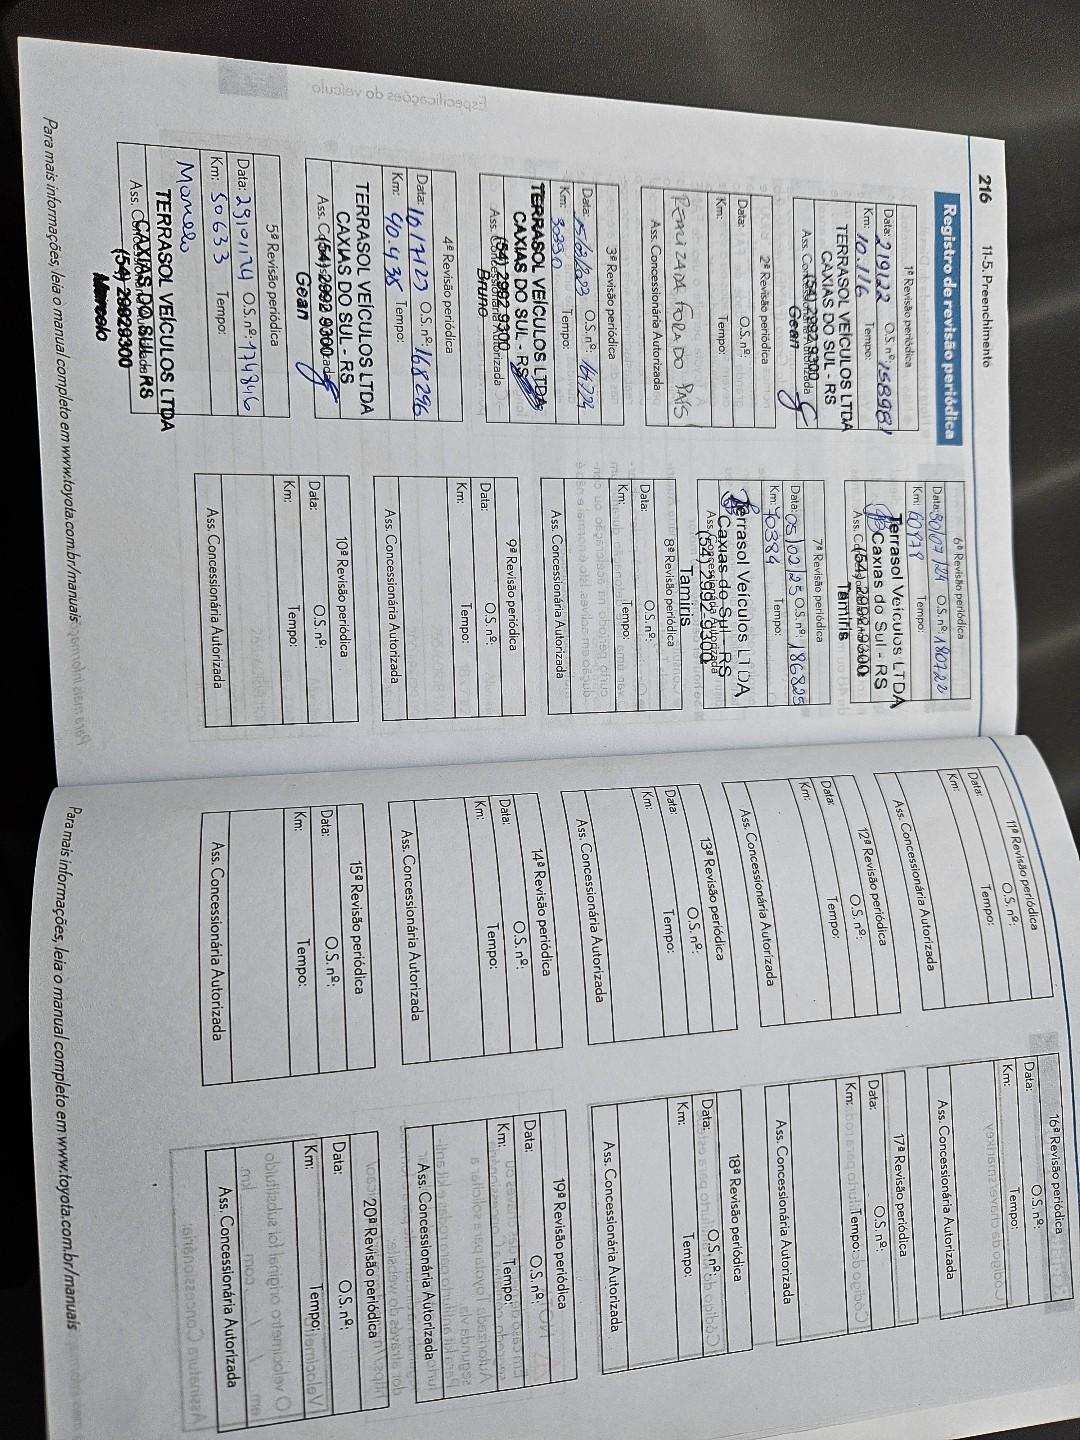 216 11-5. Preenchimento
Registro de revisão periódica
1ª Revisão periódica
Data: 21/9/22 O.S. nº: 158981
Km: 10.116 Tempo:
TERRASOL VEÍCULOS LTDA
CAXIAS DO SUL - RS
(54) 2992 9300
Ass. Concessionária Autorizada
Gean
2ª Revisão periódica
Data: O.S. nº:
Km: Tempo:
REALIZADA FORA DO PAÍS
Ass. Concessionária Autorizada
3ª Revisão periódica
Data: 15/02/2023 O.S. nº: 164724
Km: Tempo:
TERRASOL VEÍCULOS LTDA
CAXIAS DO SUL - RS
(54) 2992 9300
Ass. Concessionária Autorizada
Bruno
4ª Revisão periódica
Data: 10/7/23 O.S. nº: 168296
Km: 40.435 Tempo:
TERRASOL VEÍCULOS LTDA
CAXIAS DO SUL - RS
(54) 2992 9300
Gean
5ª Revisão periódica
Data: 29/01/24 O.S. nº: 174816
Km: 5063 Tempo:
TERRASOL VEÍCULOS LTDA
CAXIAS DO SUL RS
(54) 29929300
Marcelo
6ª Revisão periódica
Data: 30/07/24 O.S. nº: 180722
Km: 60978 Tempo:
Terrasol Veículos LTDA
Caxias do Sul - RS
(54) 2992 9300
Tamiris
7ª Revisão periódica
Data: 05/02/25 O.S. nº: 186825
Km: 70384 Tempo:
Terrasol Veículos LTDA
Caxias do Sul - RS
(54) 2992 9300
Tamiris
8ª Revisão periódica
Data: O.S. nº:
Km: Tempo:
Ass. Concessionária Autorizada
9ª Revisão periódica
Data: O.S. nº:
Km: Tempo:
Ass. Concessionária Autorizada
10ª Revisão periódica
Data: O.S. nº:
Km: Tempo:
Ass. Concessionária Autorizada
Para mais informações, leia o manual completo em www.toyota.com.br/manuais
11ª Revisão periódica
Data: O.S. nº:
Km: Tempo:
Ass. Concessionária Autorizada
12ª Revisão periódica
Data: O.S. nº:
Km: Tempo:
Ass. Concessionária Autorizada
13ª Revisão periódica
Data: O.S. nº:
Km: Tempo:
Ass. Concessionária Autorizada
14ª Revisão periódica
Data: O.S. nº:
Km: Tempo:
Ass. Concessionária Autorizada
15ª Revisão periódica
Data: O.S. nº:
Km: Tempo:
Ass. Concessionária Autorizada
16ª Revisão periódica
Data: O.S. nº:
Km: Tempo:
Ass. Concessionária Autorizada
17ª Revisão periódica
Data: O.S. nº:
Km: Tempo:
Ass. Concessionária Autorizada
18ª Revisão periódica
Data: O.S. nº:
Km: Tempo:
Ass. Concessionária Autorizada
19ª Revisão periódica
Data: O.S. nº:
Km: Tempo:
Ass. Concessionária Autorizada
20ª Revisão periódica
Data: O.S. nº:
Km: Tempo:
Ass. Concessionária Autorizada
Para mais informações, leia o manual completo em www.toyota.com.br/manuais